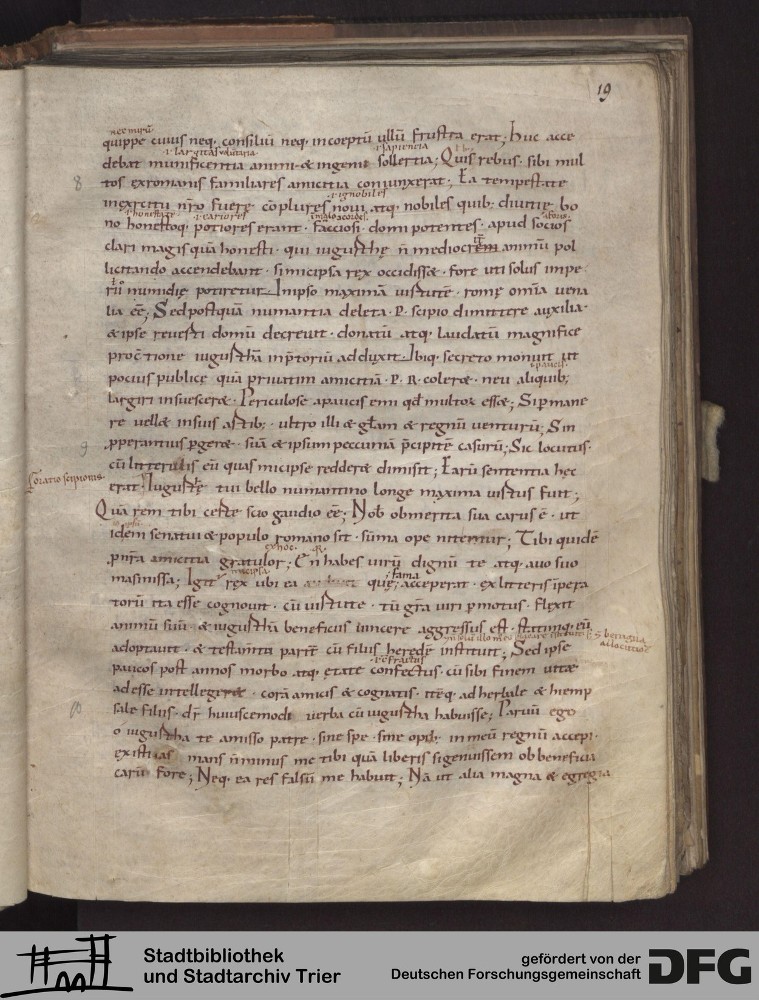 19
nec mirū
quippe cuius neq; consiliū neq; inceptū ullū frustra erat; Huc acce
.i. largitas voluntaria .i. sapientia
debat munificentia animi & ingenii sollertia; Quis rebus sibi mul
8
tos exromanis familiares amicitia coniunxerat; Ea tempestate
.i. ignobiles
inexercitu nrō fuere cōplures noui atq; nobiles quib; diuitię bo
.i. honestate .i. cariores
no honestoq; potiores erant. Facciosi domi potentes. apud socios
clari magis quā honesti. qui iugurthę n̄ mediocrem animū pol
licitando accendebant. simicipsa rex occidisset. fore uti solus impe
rii numidię potiretur. Inipso maximā uirtutē. romę omīa uena
lia eē; Sed postquā numantia deleta. P. scipio dimittere auxilia
& ipse reuerti domū decreuit. donatū atq; laudatū magnifice
procōtione iugurthā inp̄toriū adduxit. Ibiq; secreto monuit ut
.i. paucis
pocius publicę quā priuatim amicitiā P. R. coleret. neu aliquib;
largiri insuesceret. Periculose apaucis emi qđ multorū esset; Sip mane
re uellet insuis artib; ultro illi & głam & regnū uenturū; Sin
9
pperantius pgeret. suā & ipsum peccuniā p̄cipitē casurū; Sic locutus.
cū litterulis eū quas micipse redderet dimisit; Earū sententia hec
erat. Iugurthę tui bello numantino longe maxima uirtus fuit;
Quā rem tibi certe scio gaudio eē; Nob obmerita sua carus ē. ut
idem senatui & populo romano sit. sūma ope nitemur; Tibi quidē
ex hoc .R.
p nrā amicitia gratulor; En habes uirū dignū te atq; auo suo
micipsa fama
masinissa; Igit rex ubi ea quę acceperat. ex litteris īpera
toriī ita esse cognouit. cū uirtute. tū gra uiri pmotus. Flexit
animū suū. & iugurthā beneficiis uincere aggressus est. statimq; eū
adoptauit. & testamto parit cū filiis heredē instituit; Sed ipse
.i. effractus
paucos post annos morbo atq; etate confectus. cū sibi finem uitae
adesse intellegeret. corā amicis & cognatis. itēq; adherbale & hiemp
10
sale filiis. dr̄ huiuscemodi uerba cū iugurtha habuisse; Paruū ego
o iugurtha te amisso patre. sine spe. sine opib; in meū regnū accepi.
existimās n̄ minus me tibi quā liberis sigenuissem ob beneficia
carū fore; Neq; ea res falsū me habuit; Nā ut alia magna & egregia
Stadtbibliothek
und Stadtarchiv Trier
gefördert von der
Deutschen Forschungsgemeinschaft
DFG